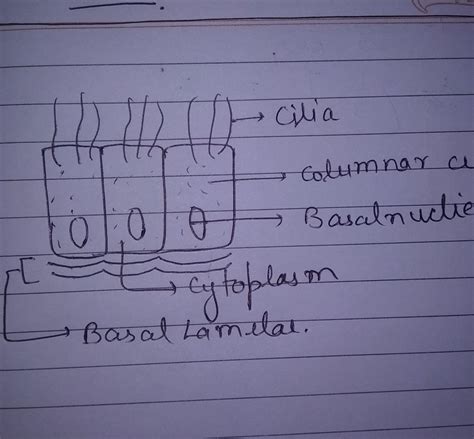 Cilia
Columnar c
Basalnuclie
Cytoplasm
Basal Lamelae.